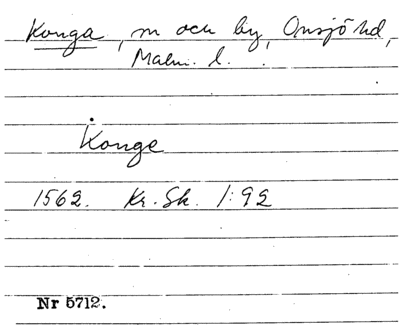 Konga, m och by, Onsjö hd,
Malm. l.
Konge
1562. Kr. Sk. 1:92
Nr 5712.